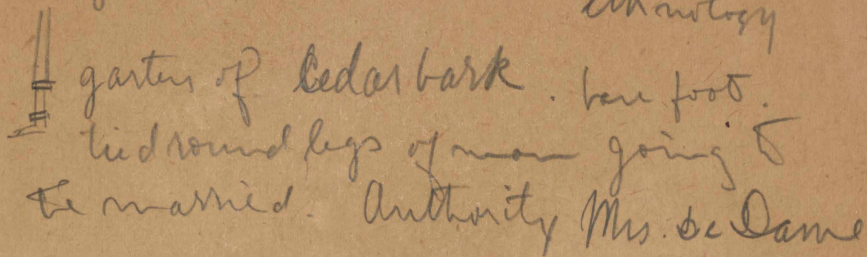 ethnology
garters of Cedar bark. bare foot.
tied round legs of man going to
be married. Authority Mrs. De Dame